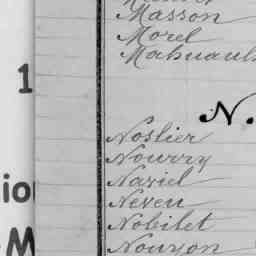 Masson
Morel
Mahuault
1
N.
Noslier
Nourry
Naviel
io
Neveu
Nobilet
M
Nouyon